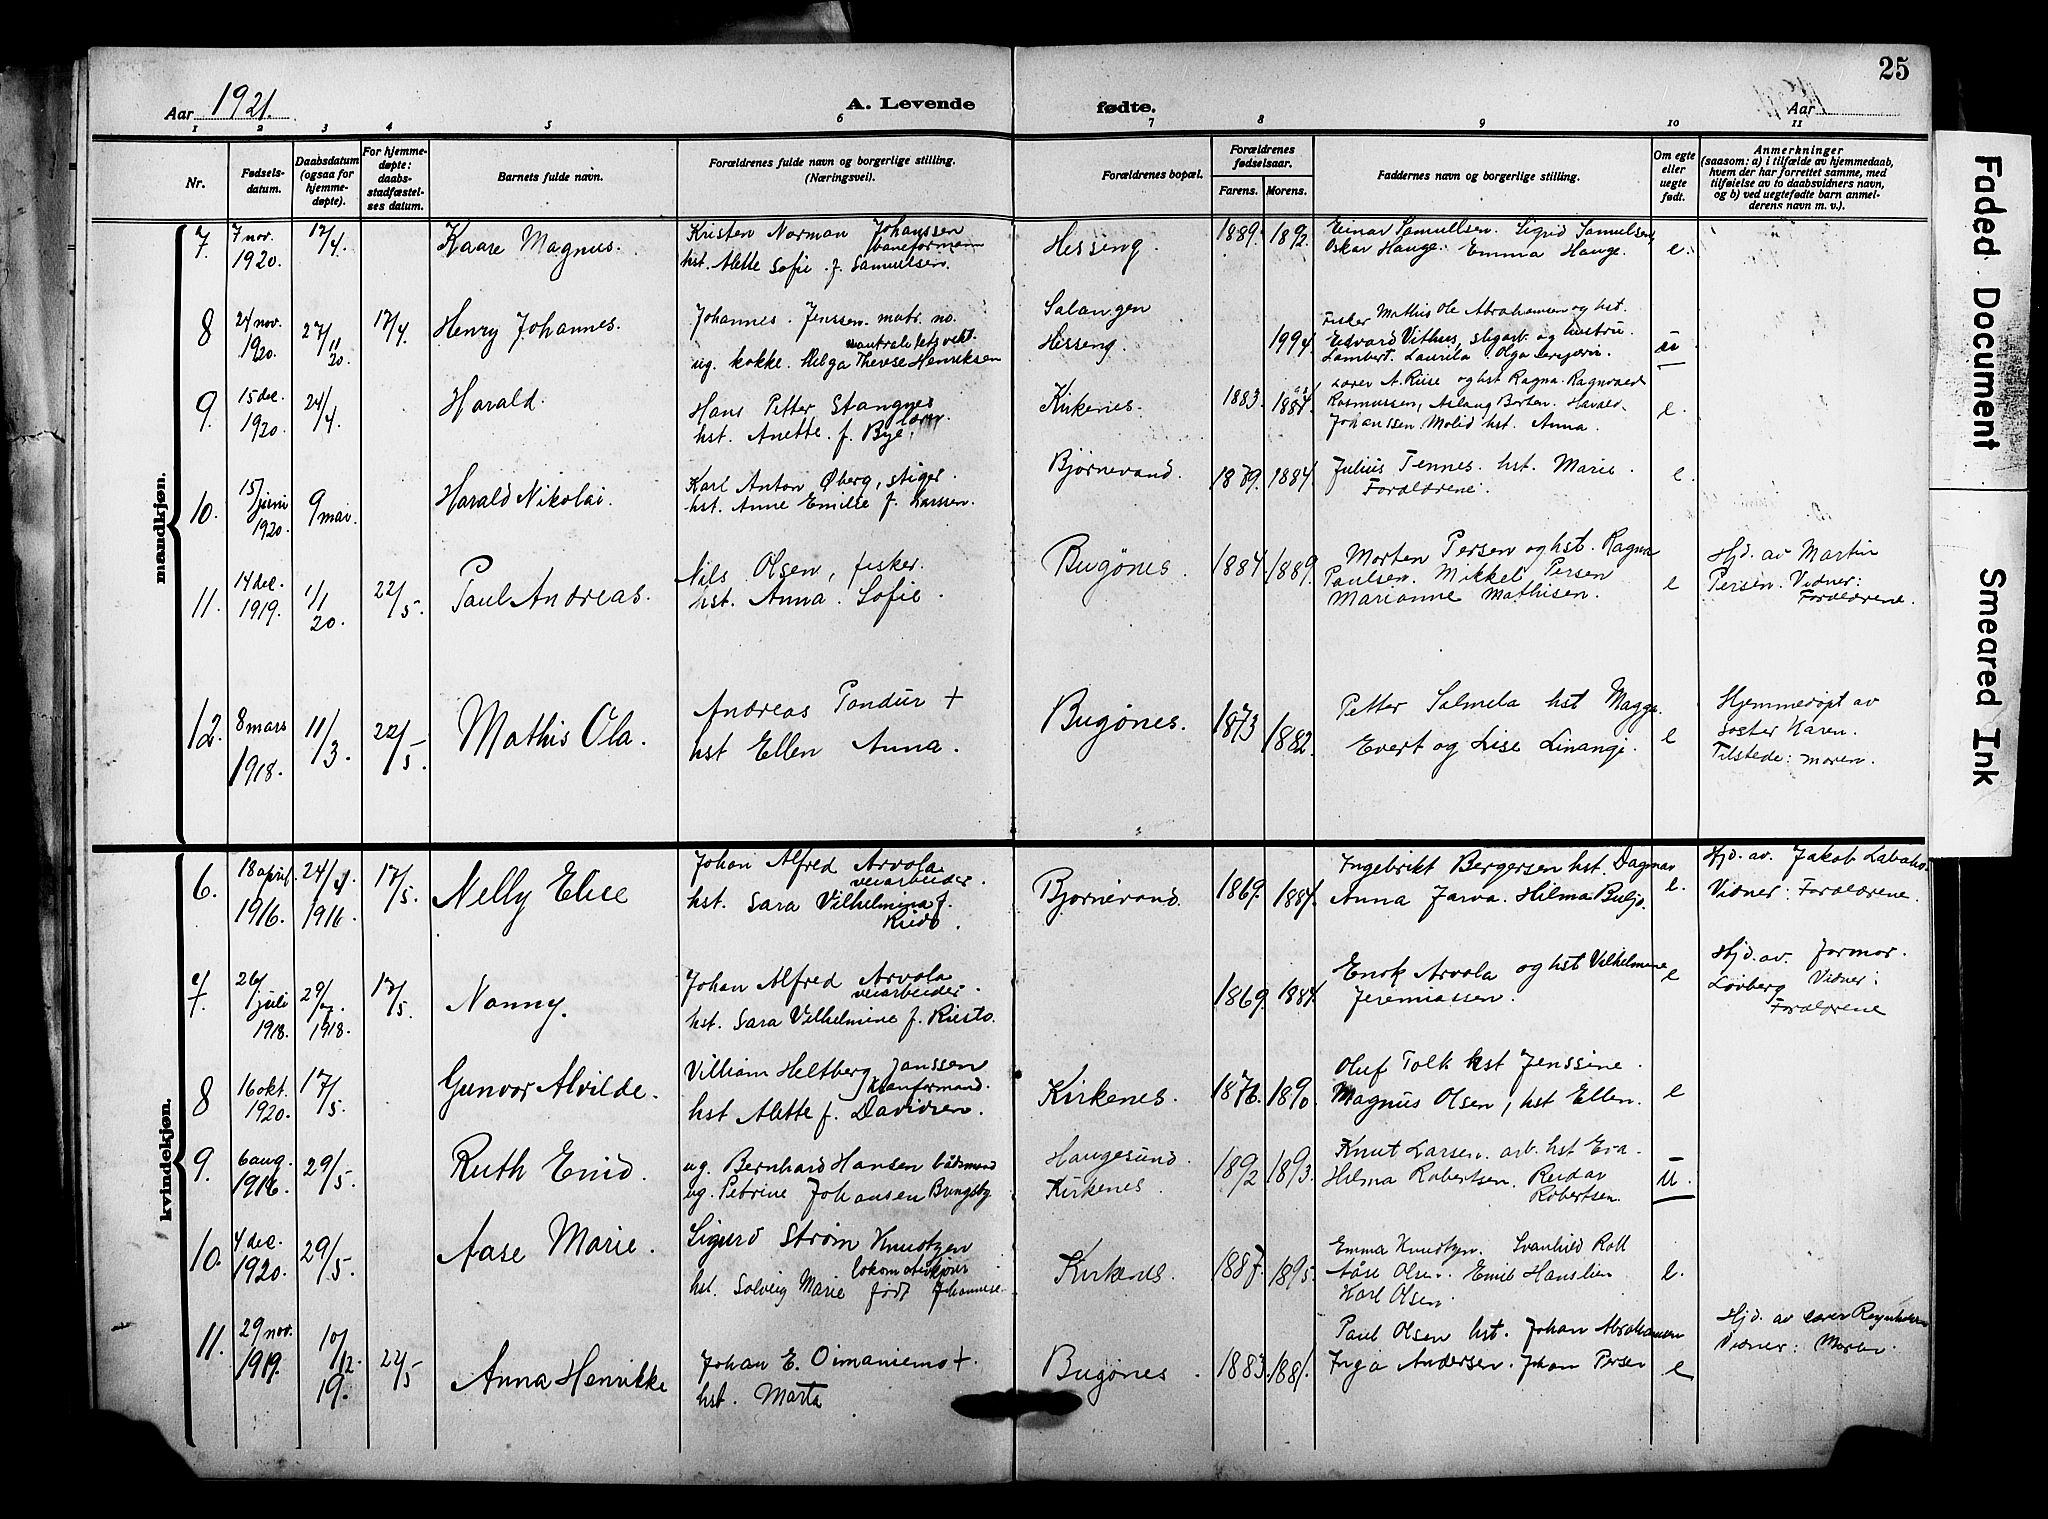 25
Aar 1921.
A. Levende fødte.
Aar
1 2 3 4 5 6 7 8 9 10 11
Nr.
Fødsels-
datum.
Daabsdatum
(ogsaa for
hjemme-
døpte).
For hjemme-
døpte:
daabs-
stadfæstel-
ses datum.
Barnets fulde navn.
Forældrenes fulde navn og borgerlige stilling.
(Næringsvei).
Forældrenes bopæl.
Forældrenes
fødselsaar.
Farens. Morens.
Faddernes navn og borgerlige stilling.
Om egte
eller
uegte
født.
Anmerkninger
(saasom: a) i tilfælde av hjemmedaab,
hvem der har forrettet samme, med
tilføielse av to daabsvidners navn,
og b) ved uegtefødte barn anmel-
derens navn m. v.).
mandkjøn.
7. 7 nov. 1920. 17/4. Kaare Magnus.
Kristen Norman Johanssen
baneformann
hst. Alette Sofie f. Samuelsen.
Hesseng. 1889. 1892.
Einar Samuelsen. Sigrid Samuelsen
Oskar Hauge. Emma Hauge. e.
8 24 nov. 1920. 27/11 20. 17/4. Henry Johannes.
Johannes Jenssen. matr. no.
ug. kokke. Helga Therese Henriksen
Salangen
Hesseng. 1994.
Fisker Mathis Ole Abrahamsen og hst.
Edvard Vithus, slgarb. og hustru.
Lambert. Laurila Olga u
9. 15 dec. 1920. 24/4. Harald.
Hans Petter Stangnes
hst. Anette f. Bye.
Kirkenes. 1883. 1884
Lærer A. Riise og hst Ragna. Ragnvald
Rasmussen, Aslaug Borten. Harald
Johanssen Molid hst. Anna. e.
10. 15/juni 1920. 9 mai. Harald Nikolai.
Karl Anton Øberg, stiger.
hst. Anne Emilie f. Larssen.
Bjørnevand. 1879. 1884.
Julius Tennes. hst. Marie.
Forældrene. e.
11. 14 dec. 1919. 1/1 20. 22/5. Paul Andreas.
Nils Olsen, fisker.
hst. Anna Sofie.
Bugønes. 1884. 1889.
Morten Persen og hst. Ragna
Paulsen. Mikkel Persen
Marianne Mathisen. e
Hjd. av Martin
Persen. Vidner:
Forældrene.
12. 8 mars 1918. 11/3. 22/5. Mathis Ola.
Andreas Pandur +
hst Ellen Anna.
Bugønes. 1873 1882.
Petter Salmela hst Magga.
Evert og Lise Linangi. e
Hjemmedøpt av
søster Karen.
Tilstede: moren.
kvindekjøn.
6. 18 april. 1916. 24/4 1916. 17/5. Nelly Elise
Johan Alfred Arvola
veiarbeider.
hst. Sara Vilhelmina f.
Riesto.
Bjørnevand. 1869. 1884.
Ingebrikt Bergersen hst. Dagmar
Anna Jarva. Hilma Buljo. e.
Hjd. av. Jakob Labaho.
Vidner: Forældrene.
7. 26/juli 1918. 29/7 1918. 17/5. Nanny.
Johan Alfred Arvola
veiarbeider
hst. Sara Vilhelmine f. Riesto.
1869. 1884.
Enok Arvola og hst Vilhelmine
Jeremiassen. e
Hjd. av. formor.
Løvberg Vidner:
Forældrene
8 16 okt. 1920. 17/5. Gunvor Alvilde.
Villiam Heltberg Janssen
hst Alette f. Davidsen.
Kirkenes. 1876. 1890
Oluf Tolk hst Jenssine.
Magnus Olsen, hst Ellen. e
9. 6 aug. 1916. 29/5. Ruth Enid.
ug. Bernhard Hansen båtsmand
ug. Petrine Johansen Bringsby
Haugesund.
Kirkenes. 1892 1893.
Knut Larsen. arb. hst Eva.
Hilma Robertsen. Reidar
Robertsen. u.
10. 4 dec. 1920. 29/5. Aase Marie.
Sigurd Strøm Knudtzen
hst. Solveig Marie født
Kirkenes. 1887. 1895.
Emma Knudtzen. Svanhild Roll
Aase Olsen. Emil Hanslien
Karl Olsen. e.
11. 29 nov. 1919. 10/12 19. 22/5 Anna Henrikke
Johan E. Oimaniemo +.
hst. Marta
Bugønes. 1883. 1881.
Paul Olsen hst. Johan Abrahamsen
Inga Andersen. Johan Persen e
Hjd. av lærer
Vidner: Moren.
Faded Document
Smeared Ink